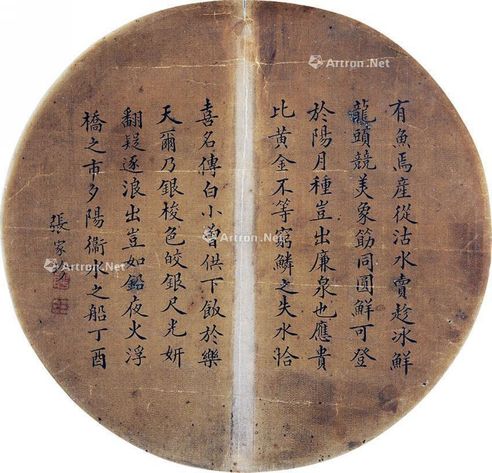 有魚焉產從沽水賣趁冰鮮
龍頭競美象筯同圓鮮可登
於陽月種豈出廉泉也應貴
比黃金不等窮鱗之失水恰
喜名傳白小供下飯於樂
天爾乃銀梭色皎銀尺光妍
翻疑逐浪出豈如夜火浮
橋之市夕陽衛水之船丁酉
張家
Artron.Net
Artron.Net
Artron.Net
Artron.Net